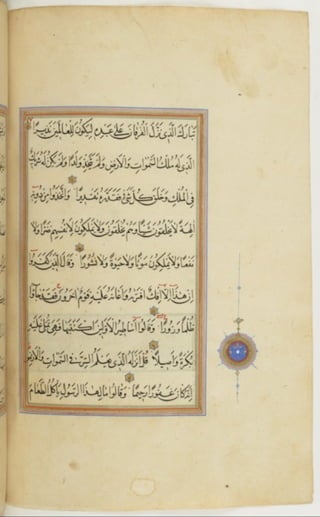 تَبَارَكَ الَّذِي نَزَّلَ الْفُرْقَانَ عَلَى عَبْدِهِ لِيَكُونَ لِلْعَالَمِينَ نَذِيرًا
الَّذِي لَهُ مُلْكُ السَّمَوَاتِ وَالْأَرْضِ وَلَمْ يَتَّخِذْ وَلَدًا وَلَمْ يَكُنْ لَهُ شَرِيكٌ
فِي الْمُلْكِ وَخَلَقَ كُلَّ شَيْءٍ فَقَدَّرَهُ تَقْدِيرًا وَاتَّخَذُوا مِنْ دُونِهِ
آلِهَةً لَا يَخْلُقُونَ شَيْئًا وَهُمْ يُخْلَقُونَ وَلَا يَمْلِكُونَ لِأَنْفُسِهِمْ ضَرًّا وَلَا
نَفْعًا وَلَا يَمْلِكُونَ مَوْتًا وَلَا حَيٰوةً وَلَا نُشُورًا وَقَالَ الَّذِينَ كَفَرُوا
إِنْ هَذَا إِلَّا إِفْكٌ افْتَرَيهُ وَأَعَانَهُ عَلَيْهِ قَوْمٌ آخَرُونَ فَقَدْ جَاؤُا
ظُلْمًا وَزُورًا وَقَالُوا أَسَاطِيرُ الْأَوَّلِينَ اكْتَتَبَهَا فَهِيَ تُمْلَى عَلَيْهِ
بُكْرَةً وَأَصِيلًا قُلْ أَنْزَلَهُ الَّذِي يَعْلَمُ السِّرَّ فِي السَّمَوَاتِ وَالْأَرْضِ
إِنَّهُ كَانَ غَفُورًا رَحِيمًا وَقَالُوا مَالِ هَذَا الرَّسُولِ يَأْكُلُ الطَّعَامَ